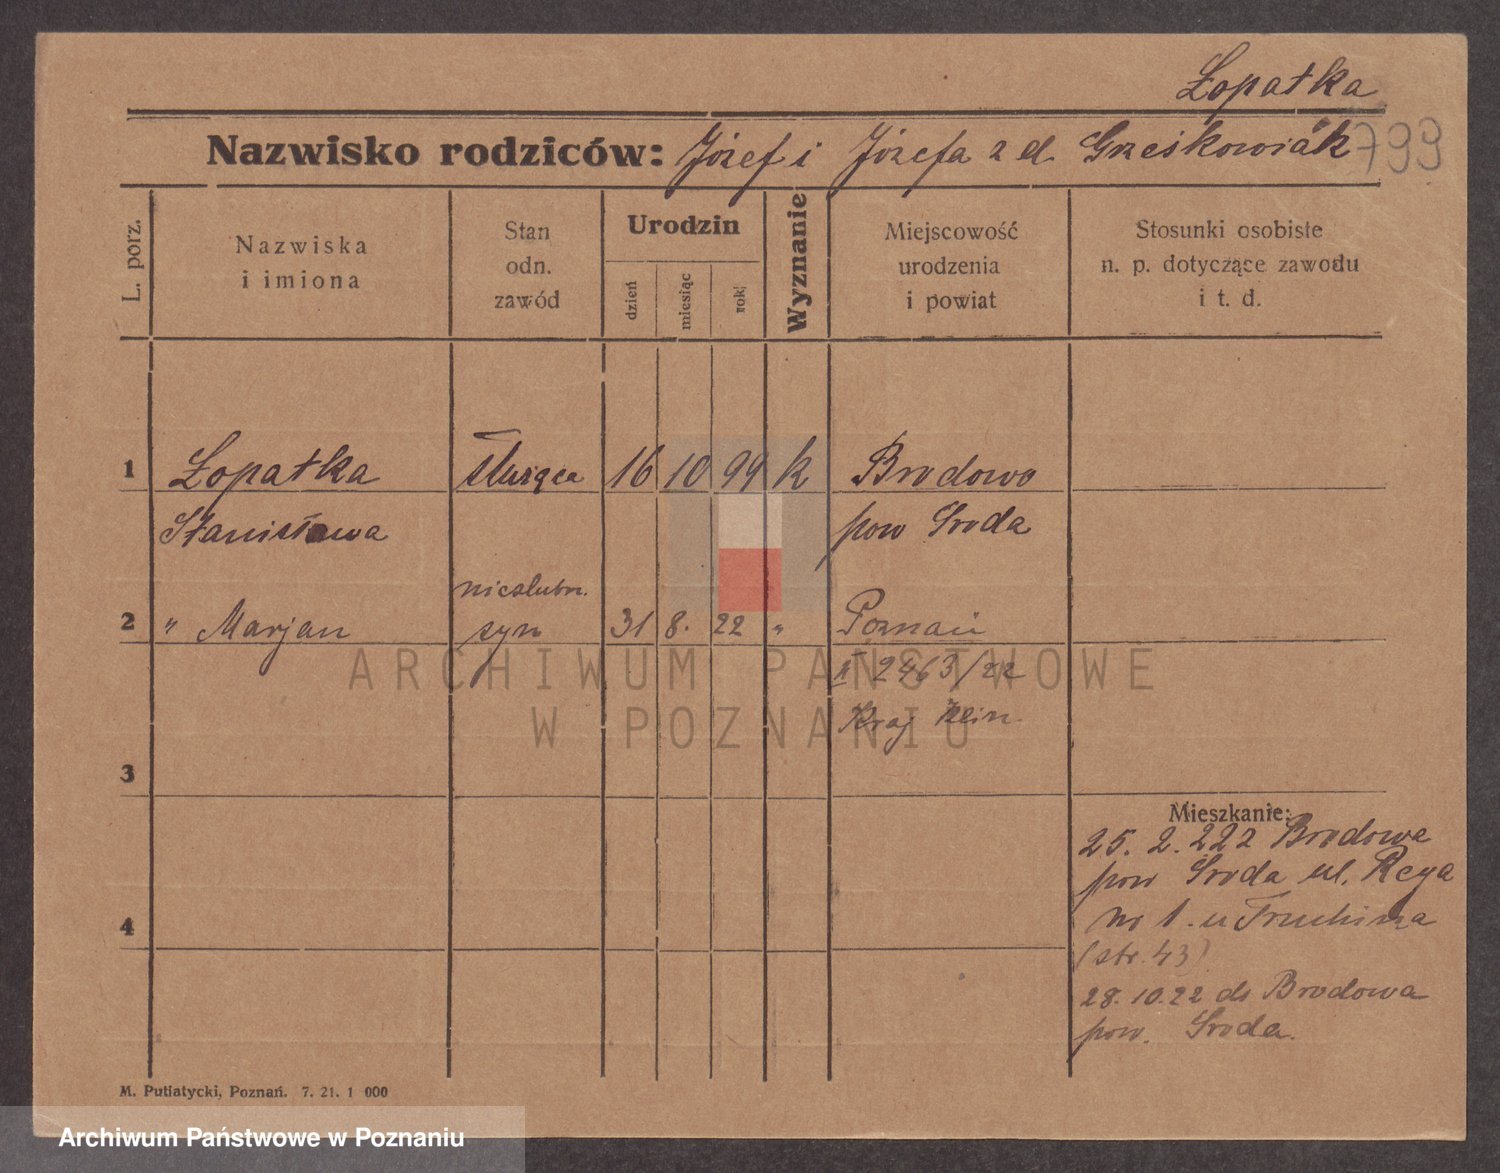 Łopatka
Nazwisko rodziców: Józef i Józefa z d. Grześkowiak 799
L. porz.
Nazwiska
i imiona
Stan
odn.
zawód
Urodzin
dzień
miesiąc
rok
Wyznanie
Miejscowość
urodzenia
i powiat
Stosunki osobiste
n. p. dotyczące zawodu
i t. d.
1 Łopatka służąca 16 10 99 k Brodowo
Stanisława pow Środa
nieślubn.
2 " Marjan syn 31 8. 22 " Poznań
II 2463/22
3
4
Mieszkanie:
25. 2. 222 Brodowa
pow Środa ul. Reya
no 1. u
(str. 43)
28.10.22 do Brodowa
pow. Środa.
M. Putiatycki, Poznań. 7. 21. 1 000
ARCHIWUM PAŃSTWOWE
W POZNANIU
Archiwum Państwowe w Poznaniu